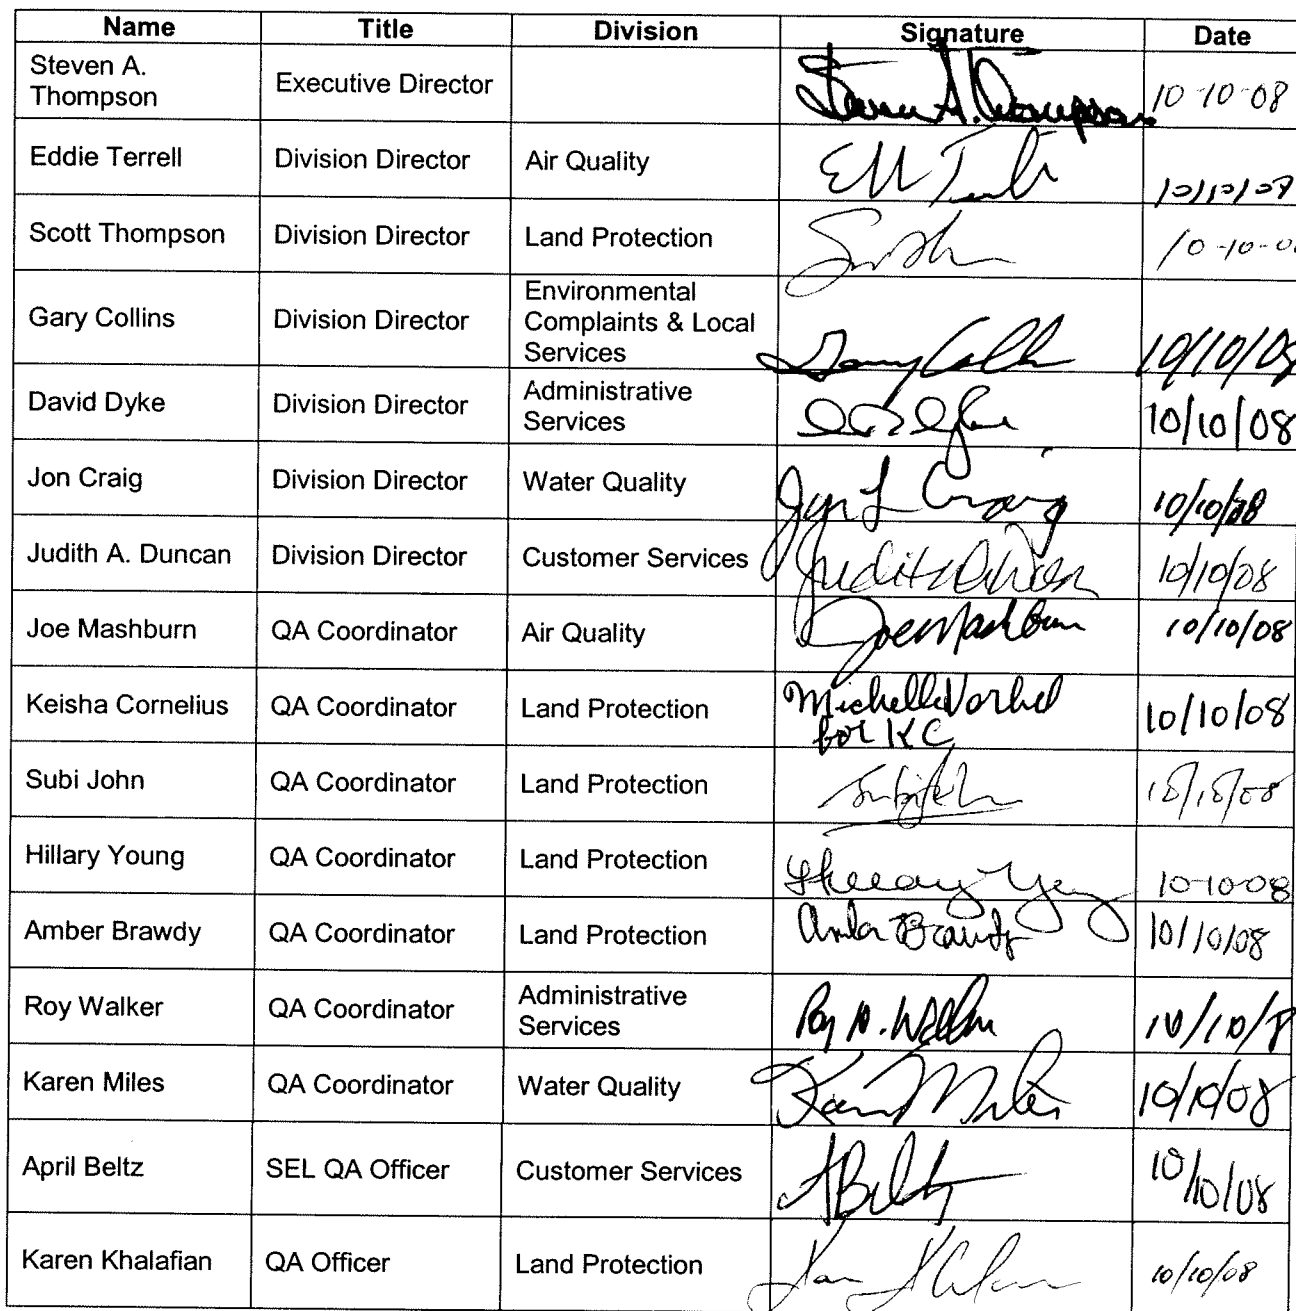 Name Title Division Signature Date
Steven A.
Thompson Executive Director Steven A. Thompson 10-10-08
Eddie Terrell Division Director Air Quality 10/10/08
Scott Thompson Division Director Land Protection 10-10-0
Gary Collins Division Director Environmental
Complaints & Local
Services Gary Collins 10/10/08
David Dyke Division Director Administrative
Services 10/10/08
Jon Craig Division Director Water Quality Jon L Craig 10/10/08
Judith A. Duncan Division Director Customer Services Judith Duncan 10/10/08
Joe Mashburn QA Coordinator Air Quality Joe Mashburn 10/10/08
Keisha Cornelius QA Coordinator Land Protection Michelle Vorhel
for KC 10/10/08
Subi John QA Coordinator Land Protection Subi John 10/10/08
Hillary Young QA Coordinator Land Protection Hillary Young 10-10-08
Amber Brawdy QA Coordinator Land Protection Amber Brawdy 10/10/08
Roy Walker QA Coordinator Administrative
Services Roy N. Walker 10/10/8
Karen Miles QA Coordinator Water Quality Karen Miles 10/10/08
April Beltz SEL QA Officer Customer Services ABeltz 10/10/08
Karen Khalafian QA Officer Land Protection 10/10/08